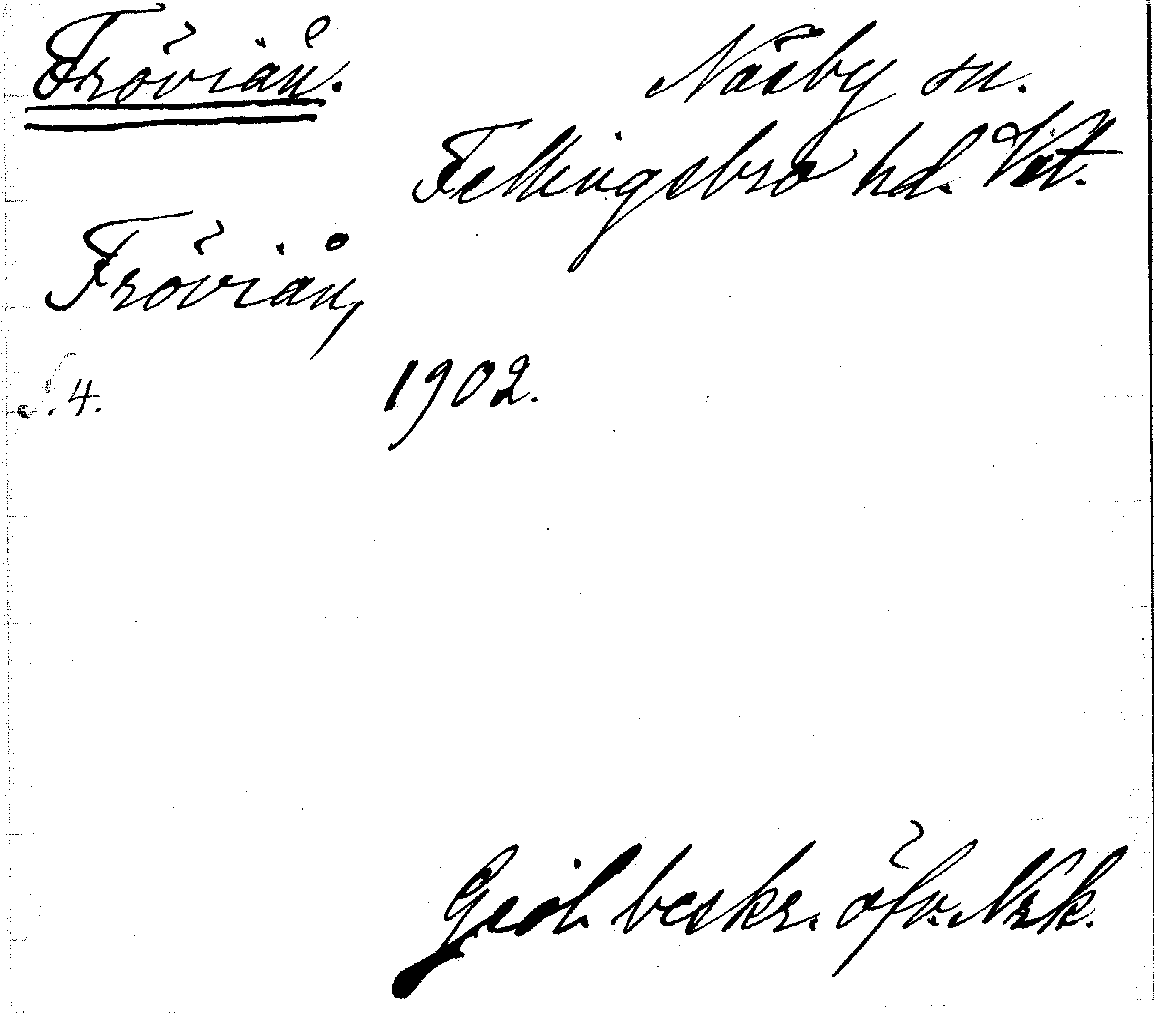 Fröviån.
Näsby sn.
Fellingsbro hd. Vst.
Fröviån,
S. 4. 1902.
Geol. beskr. öfv. Nrk.